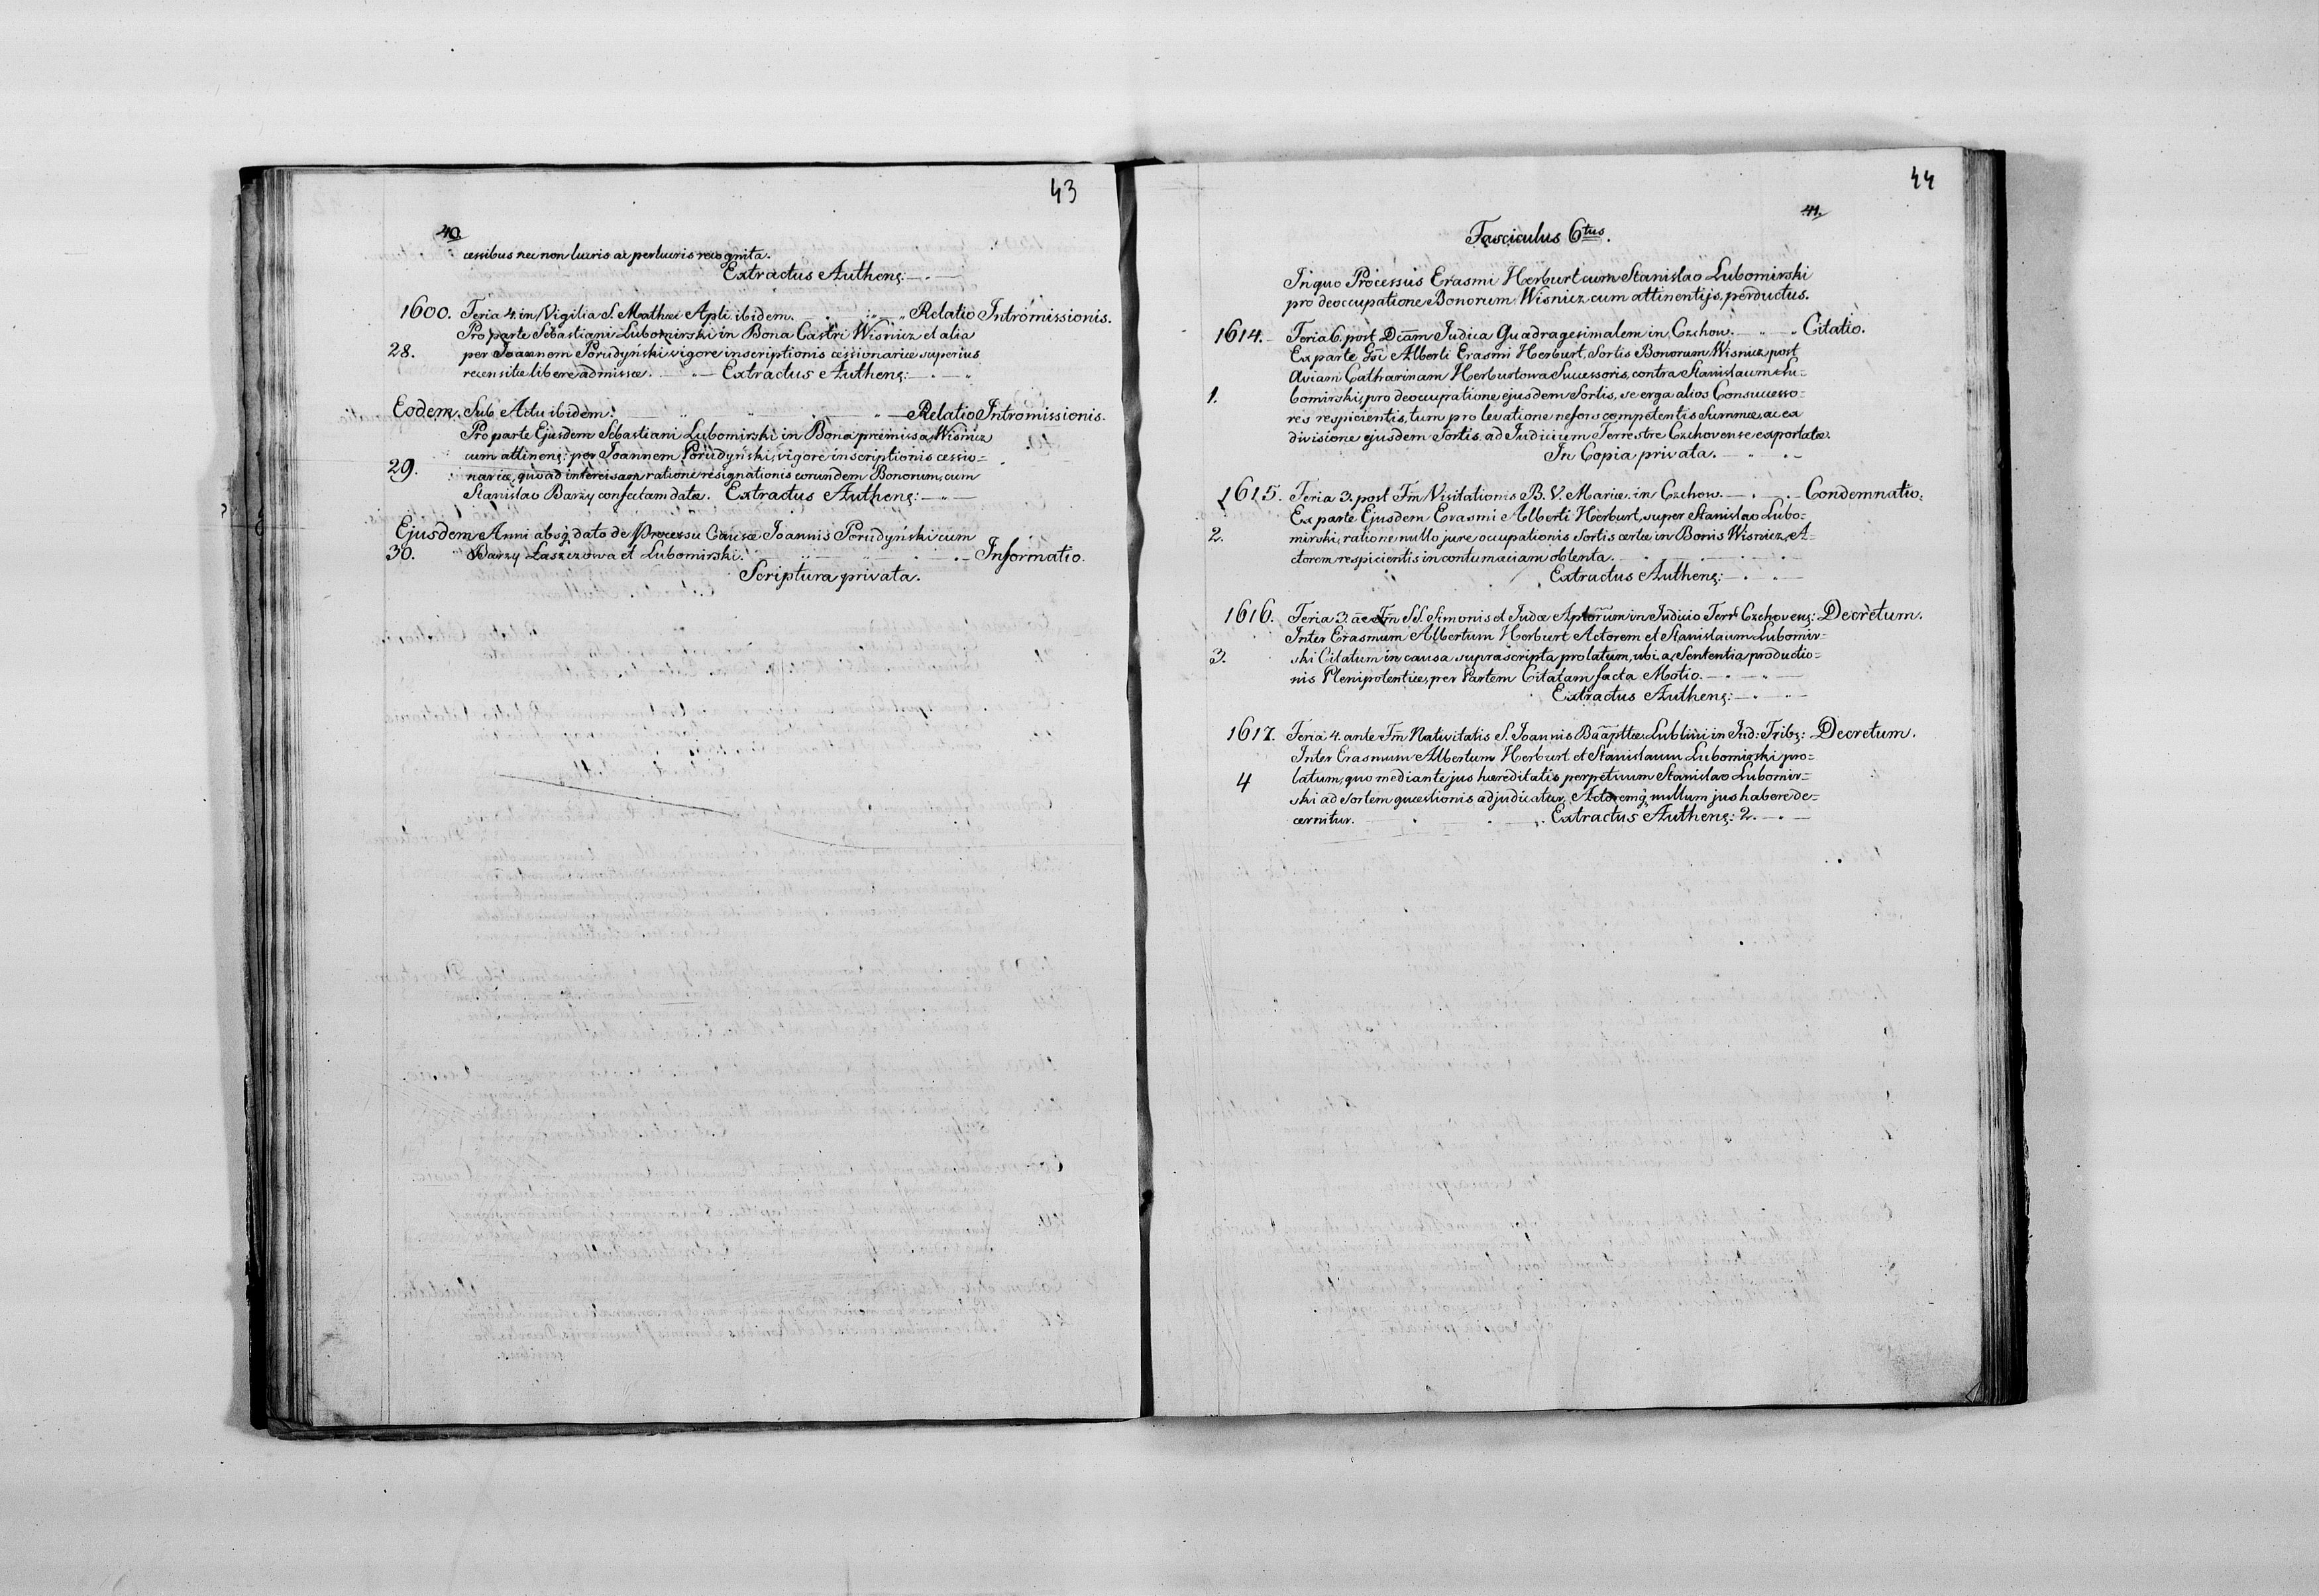 43
40.
cessibus nec non lucris ac perlucris recognita.
Extractus Authenς:
1600. Feria 4. in Vigilia S. Mathæi Apli ibidem. Relatio Intromissionis.
Pro parte Sebastiani Lubomirski in Bona Castri Wisnicz et alia
28. per Joannem Porudyński vigore inscriptionis cessionariæ superius
recensitæ libere admissæ. Extractus Authenς:
Eodem. Sub Actu ibidem. Relatio Intromissionis.
Pro parte Ejusdem Sebastiani Lubomirski in Bona præmissa Wisnicz
cum attinenς: per Joannem Porudyński, vigore inscriptionis cessio=
29. nariæ, quoad intercisam ratione resignationis eorundem Bonorum, cum
Stanislao Barzy confectam datæ. Extractus Authenς:
Ejusdem Anni absq́ dato de Processu Causæ Joannis Porudyński cum
30. Barzy Łaszczowa et Lubomirski. Informatio.
Scriptura privata.
44
41.
Fasciculus 6tus.
In quo Processus Erasmi Herburt cum Stanislao Lubomirski
pro deoccupatione Bonorum Wisnicz cum attinentijs, perductus.
1614. Feria 6. post Dcam Judica Quadragesimalem in Czchow. Citatio.
Ex parte Gsi Alberti Erasmi Herburt, Sortis Bonorum Wisnicz post
Aviam Catharinam Herburtowa Successoris, contra Stanislaum Lu=
1. bomirski, pro deoccupatione ejusdem Sortis, se erga alios Consuccesso=
res respicientis, tum pro levatione nefors competentis Summæ, ac ex
divisione ejusdem Sortis. ad Judicium Terrestre Czchovense exportatæ.
In Copia privata.
1615. Feria 3. post Fm̄ Visitationis B. V. Mariæ. in Czchow. Condemnatio.
Ex parte Ejusdem Erasmi Alberti Herburt, super Stanislao Lubo=
2. mirski, ratione nullo jure occupationis Sortis certæ in Bonis Wisnicz, A=
ctorem respicientis in contumaciam obtenta.
Extractus Authenς:
1616. Feria 3. ae Fm̄ SS. Simonis et Judæ Aptorum in Judicio Terr Czchovenς: Decretum.
Inter Erasmum Albertum Herburt Actorem et Stanislaum Lubomir=
3. ski Citatum in causa suprascripta prolatum, ubi a Sententia productio=
nis Plenipotentiæ, per Partem Citatam facta Motio.
Extractus Authenς:
1617. Feria 4. ante Fm̄ Nativitatis S. Joannis Baapttæ Lublini in Jud: Tribς: Decretum.
Inter Erasmum Albertum Herburt et Stanislaum Lubomirski pro=
4 latum, quo mediante jus hæreditatis perpetuum Stanislao Lubomir=
ski ad Sortem quæstionis adjudicatur, Actoremq́ nullum jus habere de=
cernitur. Extractus Authenς: 2.